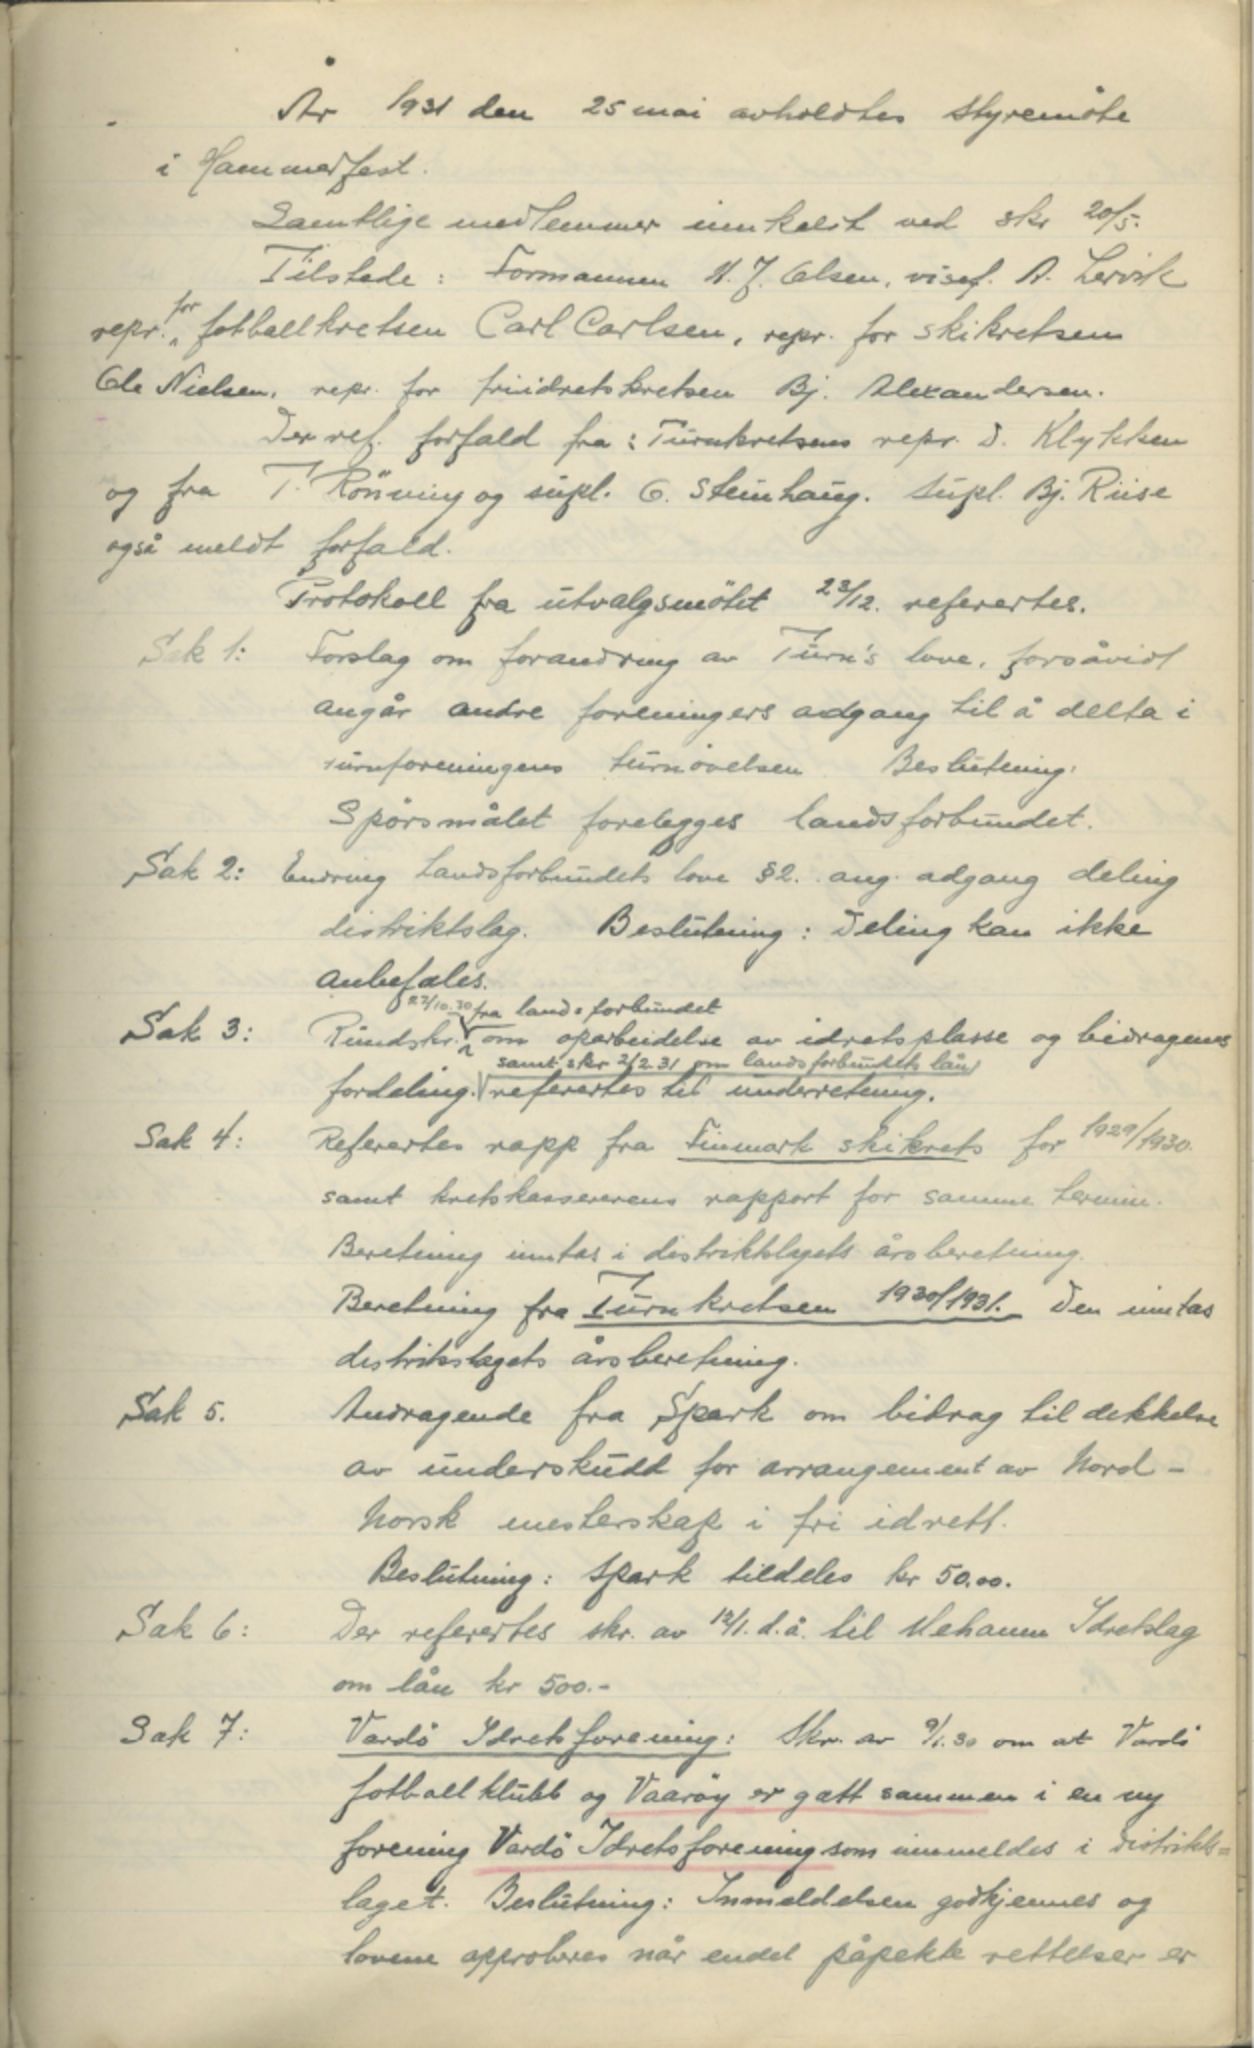 År 1931 den 25 mai avholdtes styremöte
i Hammerfest.
Samtlige medlemmer innkalst ved skr 20/5.
Tilstede: Formannen H. J. Olsen, visef. A. Lervik
repr. for fotballkretsen Carl Carlsen, repr. for skikretsen
Ole Nielsen, repr. for friidretskretsen Bj. Alexandersen.
Der ref. forfald fra: Turnkretsens repr. D. Klykken
og fra T. Rönning og supl. G. Steinhaug. Supl. Bj. Riise
også meldt forfald.
Protokoll fra utvalgsmötet 23/12. referertes.
Sak 1: Forslag om forandring av Turn's love, forsåvidt
angår andre foreningers adgang til å delta i
turnforeningens turnövelsen Beslutning:
Spörsmålet forelegges landsforbundet.
Sak 2: Endring Landsforbundets love §2. ang. adgang deling
distriktslag. Beslutning: Deling kan ikke
anbefales.
27/10.30 fra landsforbundet
Sak 3: Rundskr. om oparbeidelse av idretsplasse og bidragenes
samt skr 2/2.31 om landsforbundets lån
fordeling. referertes til underretning.
Sak 4: Referertes rapp fra Finmark skikrets for 1929/1930.
samt kretskassererens rapport for samme termin.
Beretning inntas i distriktslagets årsberetning.
Beretning fra Turnkretsen 1930/1931. Den inntas
distriktslagets årsberetning.
Sak 5. Andragende fra Spark om bidrag til dekkelse
av underskudd for arrangement av Nord-
Norsk mesterskap i fri idrett.
Beslutning: Spark tildeles kr 50.00.
Sak 6: Der referertes skr. av 12/1. d.å. til Mehamn Idretslag
om lån kr 500.-
Sak 7: Vardö Idretsforening: Skr. av 9/1.30 om at Vardö
fotballklubb og Vaaröy er gått sammen i en ny
forening Vardö Idretsforening som innmeldes i distrikts=
laget. Beslutning: Innmeldelsen godkjennes og
lovene approberes når endel påpekte rettelser er